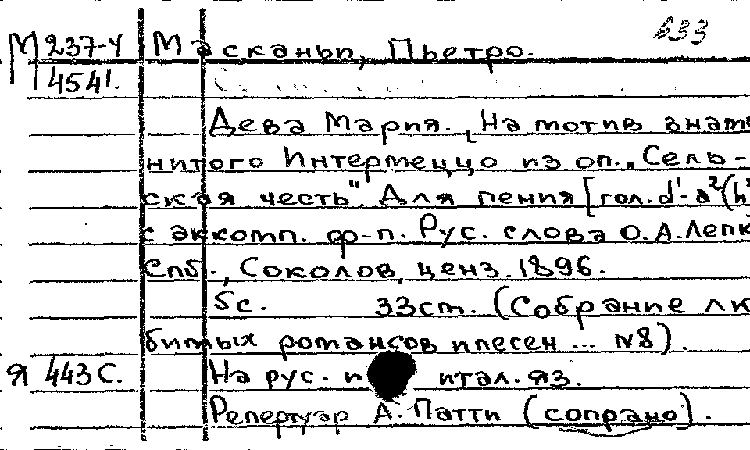 633
М 237-4 Масканьи, Пьетро.
454.
Дева Мария. [На мотив знаме
нитого Интермеццо из оп. „Сель-
ская честь". Для пения [гол. d'-a²(h²
с аккомп. ф-п. Рус. слова О.А.Лепк
Спб., Соколов, ценз. 1896.
5с. 33см. (Собрание лю
бимых романсов и песен ... №8).
Я 443С. На рус. и итал. яз.
Репертуар А. Патти (сопрано).